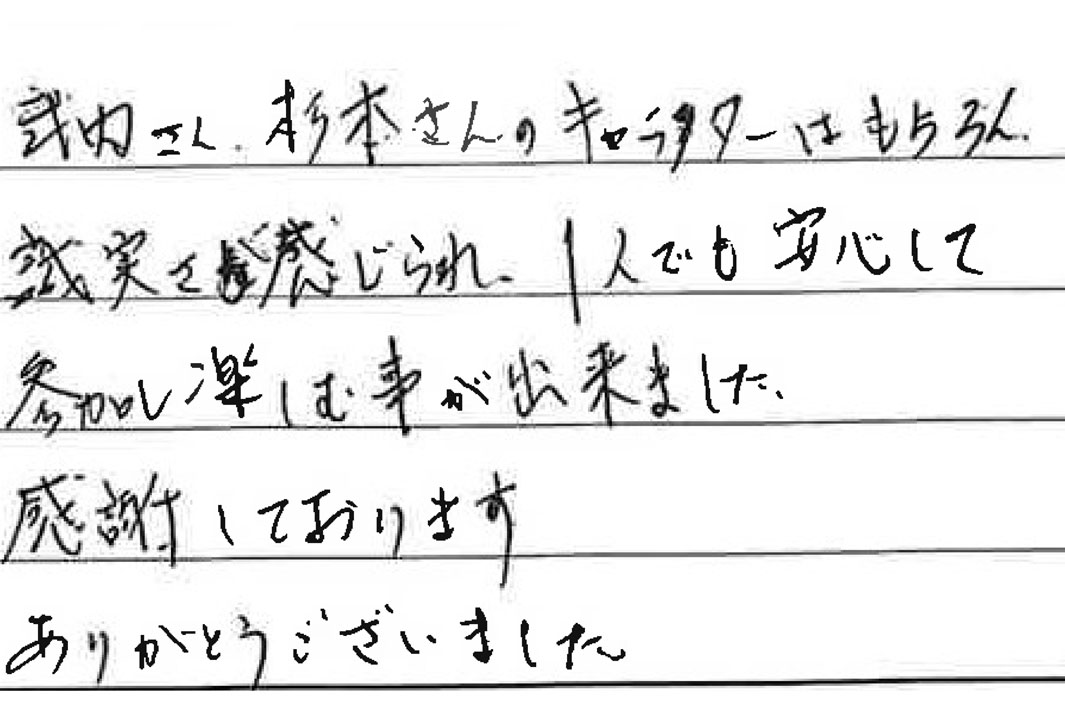 武内さん、杉本さんのキャラクターはもちろん、
誠実さが感じられ、1人でも安心して
参加し楽しむ事が出来ました。
感謝しております
ありがとうございました